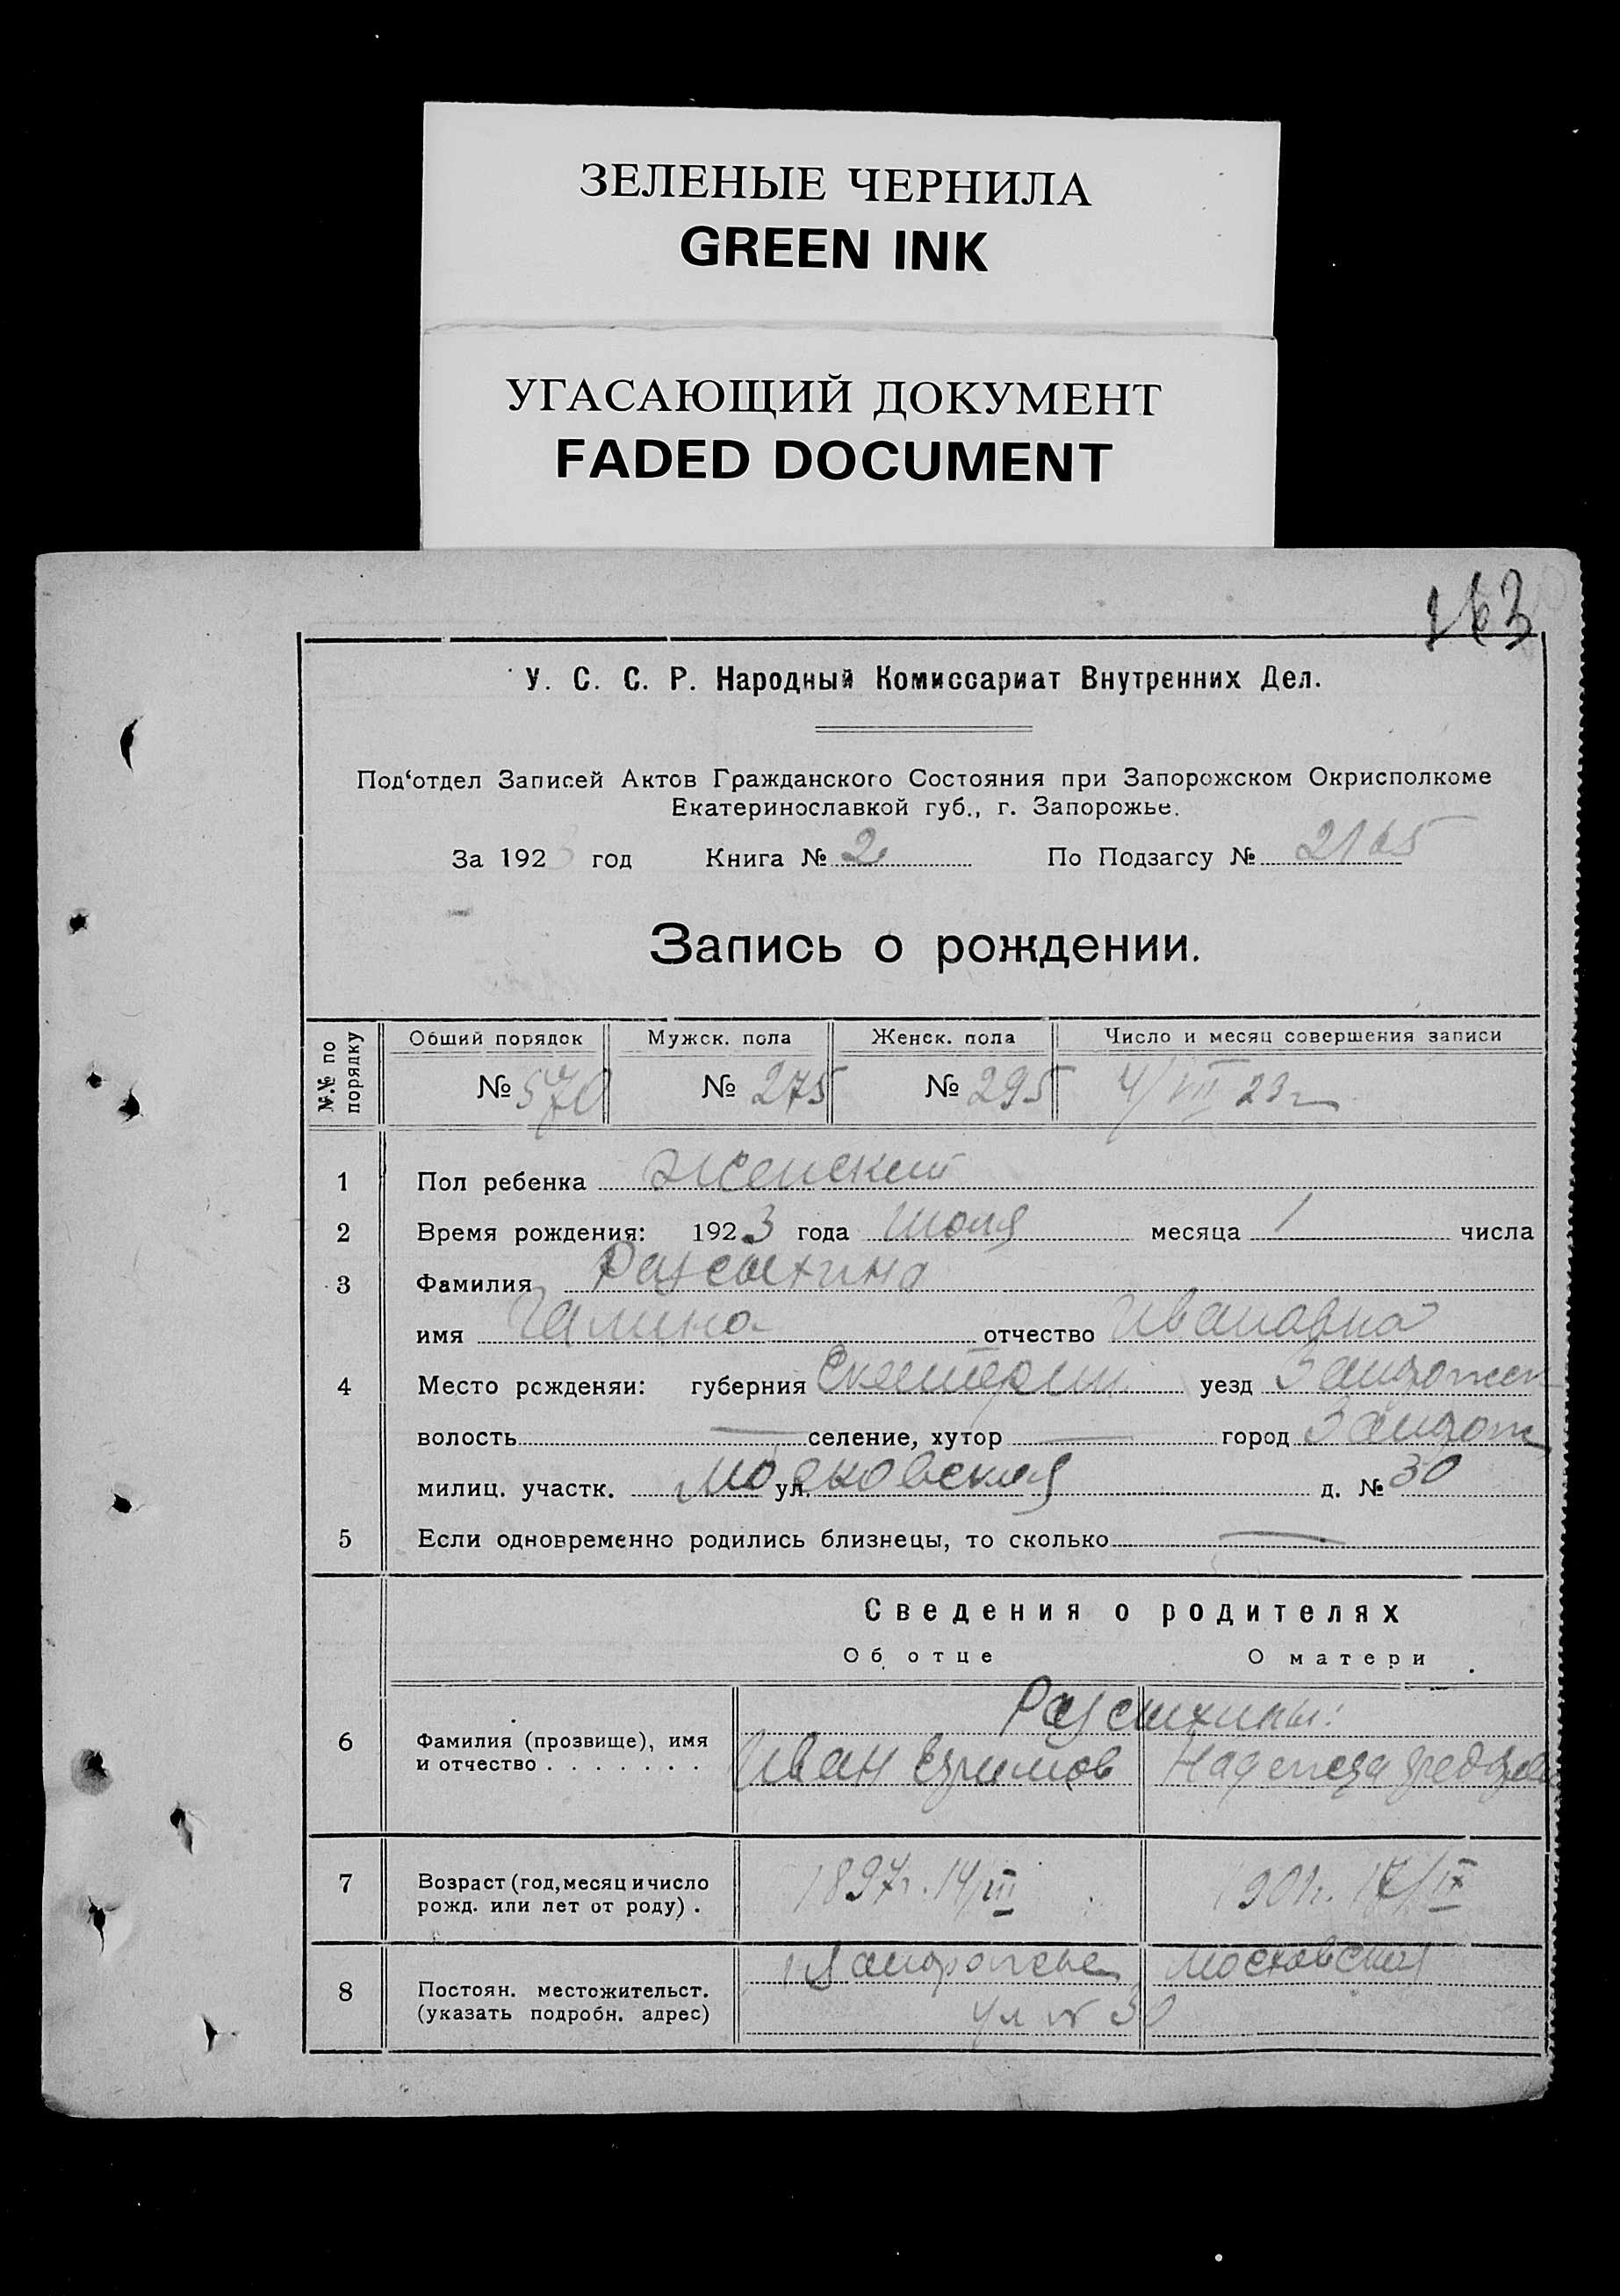 ЗЕЛЕНЫЕ ЧЕРНИЛА
GREEN INK
УГАСАЮЩИЙ ДОКУМЕНТ
FADED DOCUMENT
163
У. С. С. Р. Народный Комиссариат Внутренних Дел.
Под‘отдел Записей Актов Гражданского Состояния при Запорожском Окрисполкоме
Екатеринославкой губ., г. Запорожье.
За 1923 год Книга № 2 По Подзагсу № 2165
Запись о рождении.
№№ по порядку Общий порядок Мужск. пола Женск. пола Число и месяц совершения записи
№ 570 № 275 № 295 4/VII 23 г
1 Пол ребенка женский
2 Время рождения: 1923 года июля месяца 1 числа
3 Фамилия
имя Галина отчество Ивановна
4 Место рождения: губерния Екатерин. уезд Запорожск
волость — селение, хутор — город Запорож
милиц. участк. ул. Московская д. № 30
5 Если одновременно родились близнецы, то сколько —
Сведения о родителях
Об отце О матери
6 Фамилия (прозвище), имя
и отчество . . . . . . . Иван Ефимов Надежда
7 Возраст (год, месяц и число
рожд. или лет от роду) . 1897г. 14/III 1901г. 17/IX
8 Постоян. местожительст.
(указать подробн. адрес) Запорожье Московская
ул № 30